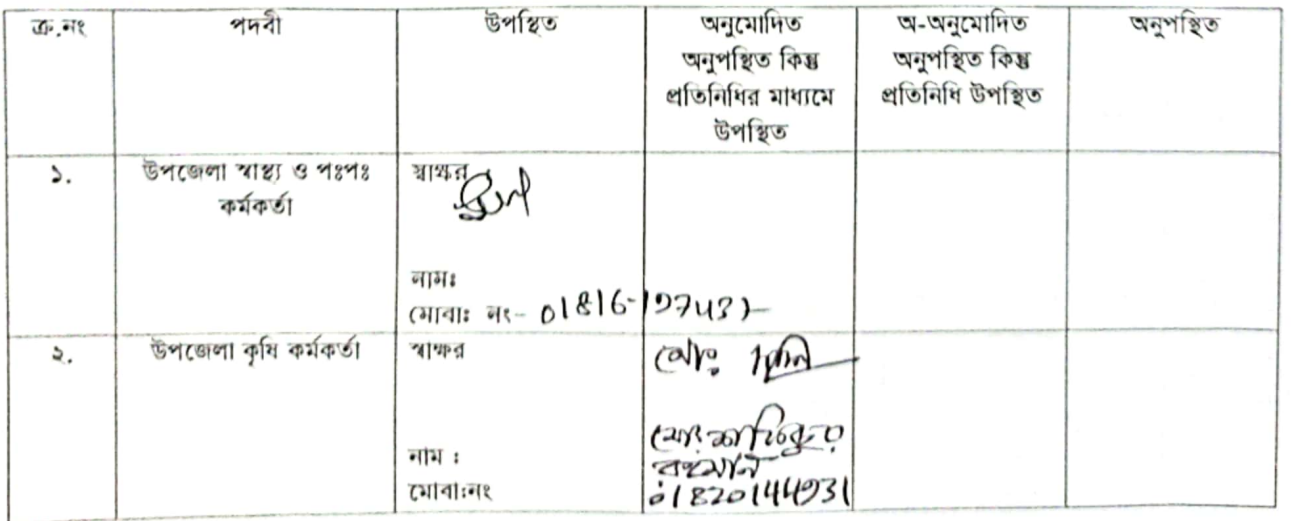 ক্র.নং পদবী উপস্থিত অনুমোদিত অনুপস্থিত কিন্তু প্রতিনিধির মাধ্যমে উপস্থিত অ-অনুমোদিত অনুপস্থিত কিন্তু প্রতিনিধি উপস্থিত অনুপস্থিত
১. উপজেলা স্বাস্থ্য ও পঃপঃ স্বাক্ষর
কর্মকর্তা
নামঃ
মোবাঃ নং-
২. উপজেলা কৃষি কর্মকর্তা স্বাক্ষর মোঃ
মোঃ
নাম : রহমান
মোবা:নং 01820144931